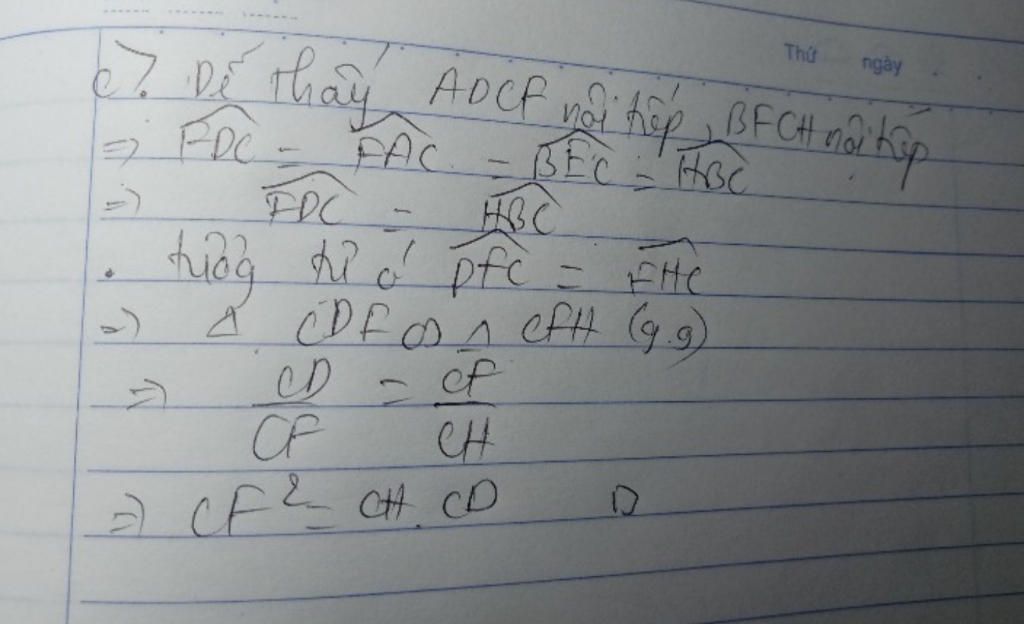 Thứ ngày
c). Dễ thấy ADCF nội tiếp, BFCH nội tiếp
=> \widehat{FDC} = \widehat{FAC} = \widehat{BFC} = \widehat{HBC}
=> \widehat{FDC} = \widehat{HBC}
. tương tự có \widehat{DFC} = \widehat{FHC}
=> Δ CDF ∽ Δ CFH (g.g)
=> \frac{CD}{CF} = \frac{CF}{CH}
=> CF² = CH.CD